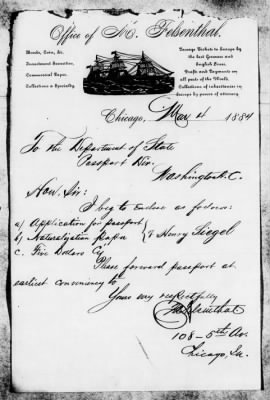 Office of M. Felsenthal.
Bonds, Loin, &c.
Investment Securities,
Commercial Paper.
Collections a Specialty.
Passage Tickets to Europe by
the best German and
English Lines.
Drafts and Payments on
all parts of the World.
Collections of inheritances in
Europe by power of attorney.
Chicago, Mar 4 1884
To the Department of State
Passport Div.
Washington D.C.
Hon. Sir:
I beg to enclose as follows:
a) Application for passport
b) Naturalization paper
of Henry Siegel
c. Five Dollars Cy
Please forward passport at
earliest conveniency to
Yours very respectfully
M Felsenthal
108 - 5th Av.
Chicago, Ill.